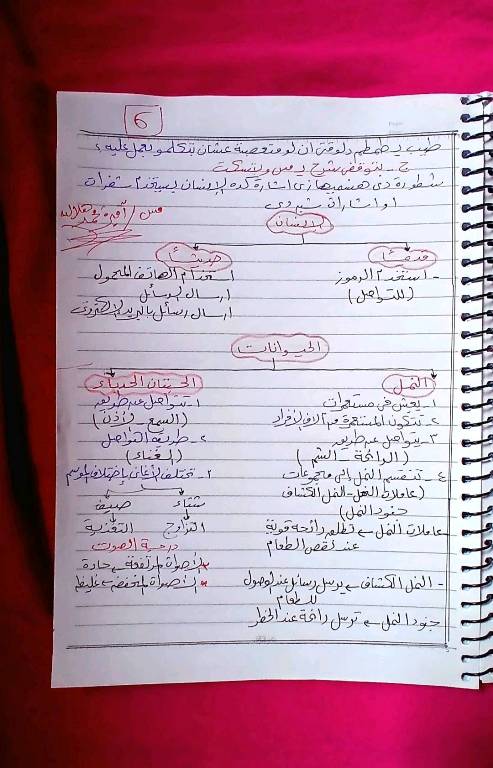 6
طيب يا طمطم دلوقتى ان لو متعصبة عشان بتتكلمو بعمل عليه؟
ج - بتوقفى شرح يا مس وبتسكت
شطورة دى هنسميها زى اشارة كده الإنسان بيستخدم شفرات
او اشارات شبه دى
مس / أميرة
الإنسان
قديمًا
حديثًا
- استخدم الرموز
(للتواصل)
استخدام الهاتف المحمول
ارسال الرسائل
ارسال رسائل بالبريد الإلكترونى
الحيوانات
النمل
١- يعيش فى مستعمرات
٢- تتكون المستعمرة من آلاف الأفراد
٣- يتواصل عن طريق
(الرائحة - الشم)
٤- تنقسم النمل إلى مجموعات
(عاملات النمل - النمل الكشاف
جنود النمل)
عاملات النمل ← تطلق رائحة قوية
عند نقص الطعام
- النمل الكشاف ← يرسل رسائل عند الوصول
للطعام
جنود النمل ← ترسل رائحة عند الخطر
الحيتان الحدباء
١- تتواصل عن طريق
(السمع - الأذن)
٢- طريقة التواصل
(الغناء)
٣- تختلف الأغانى بإختلاف الموسم
شتاء صيف
التزاوج التغذية
درجة الصوت
* الأصوات المرتفعة ← حادة
* الأصوات المنخفضة ← غليظة